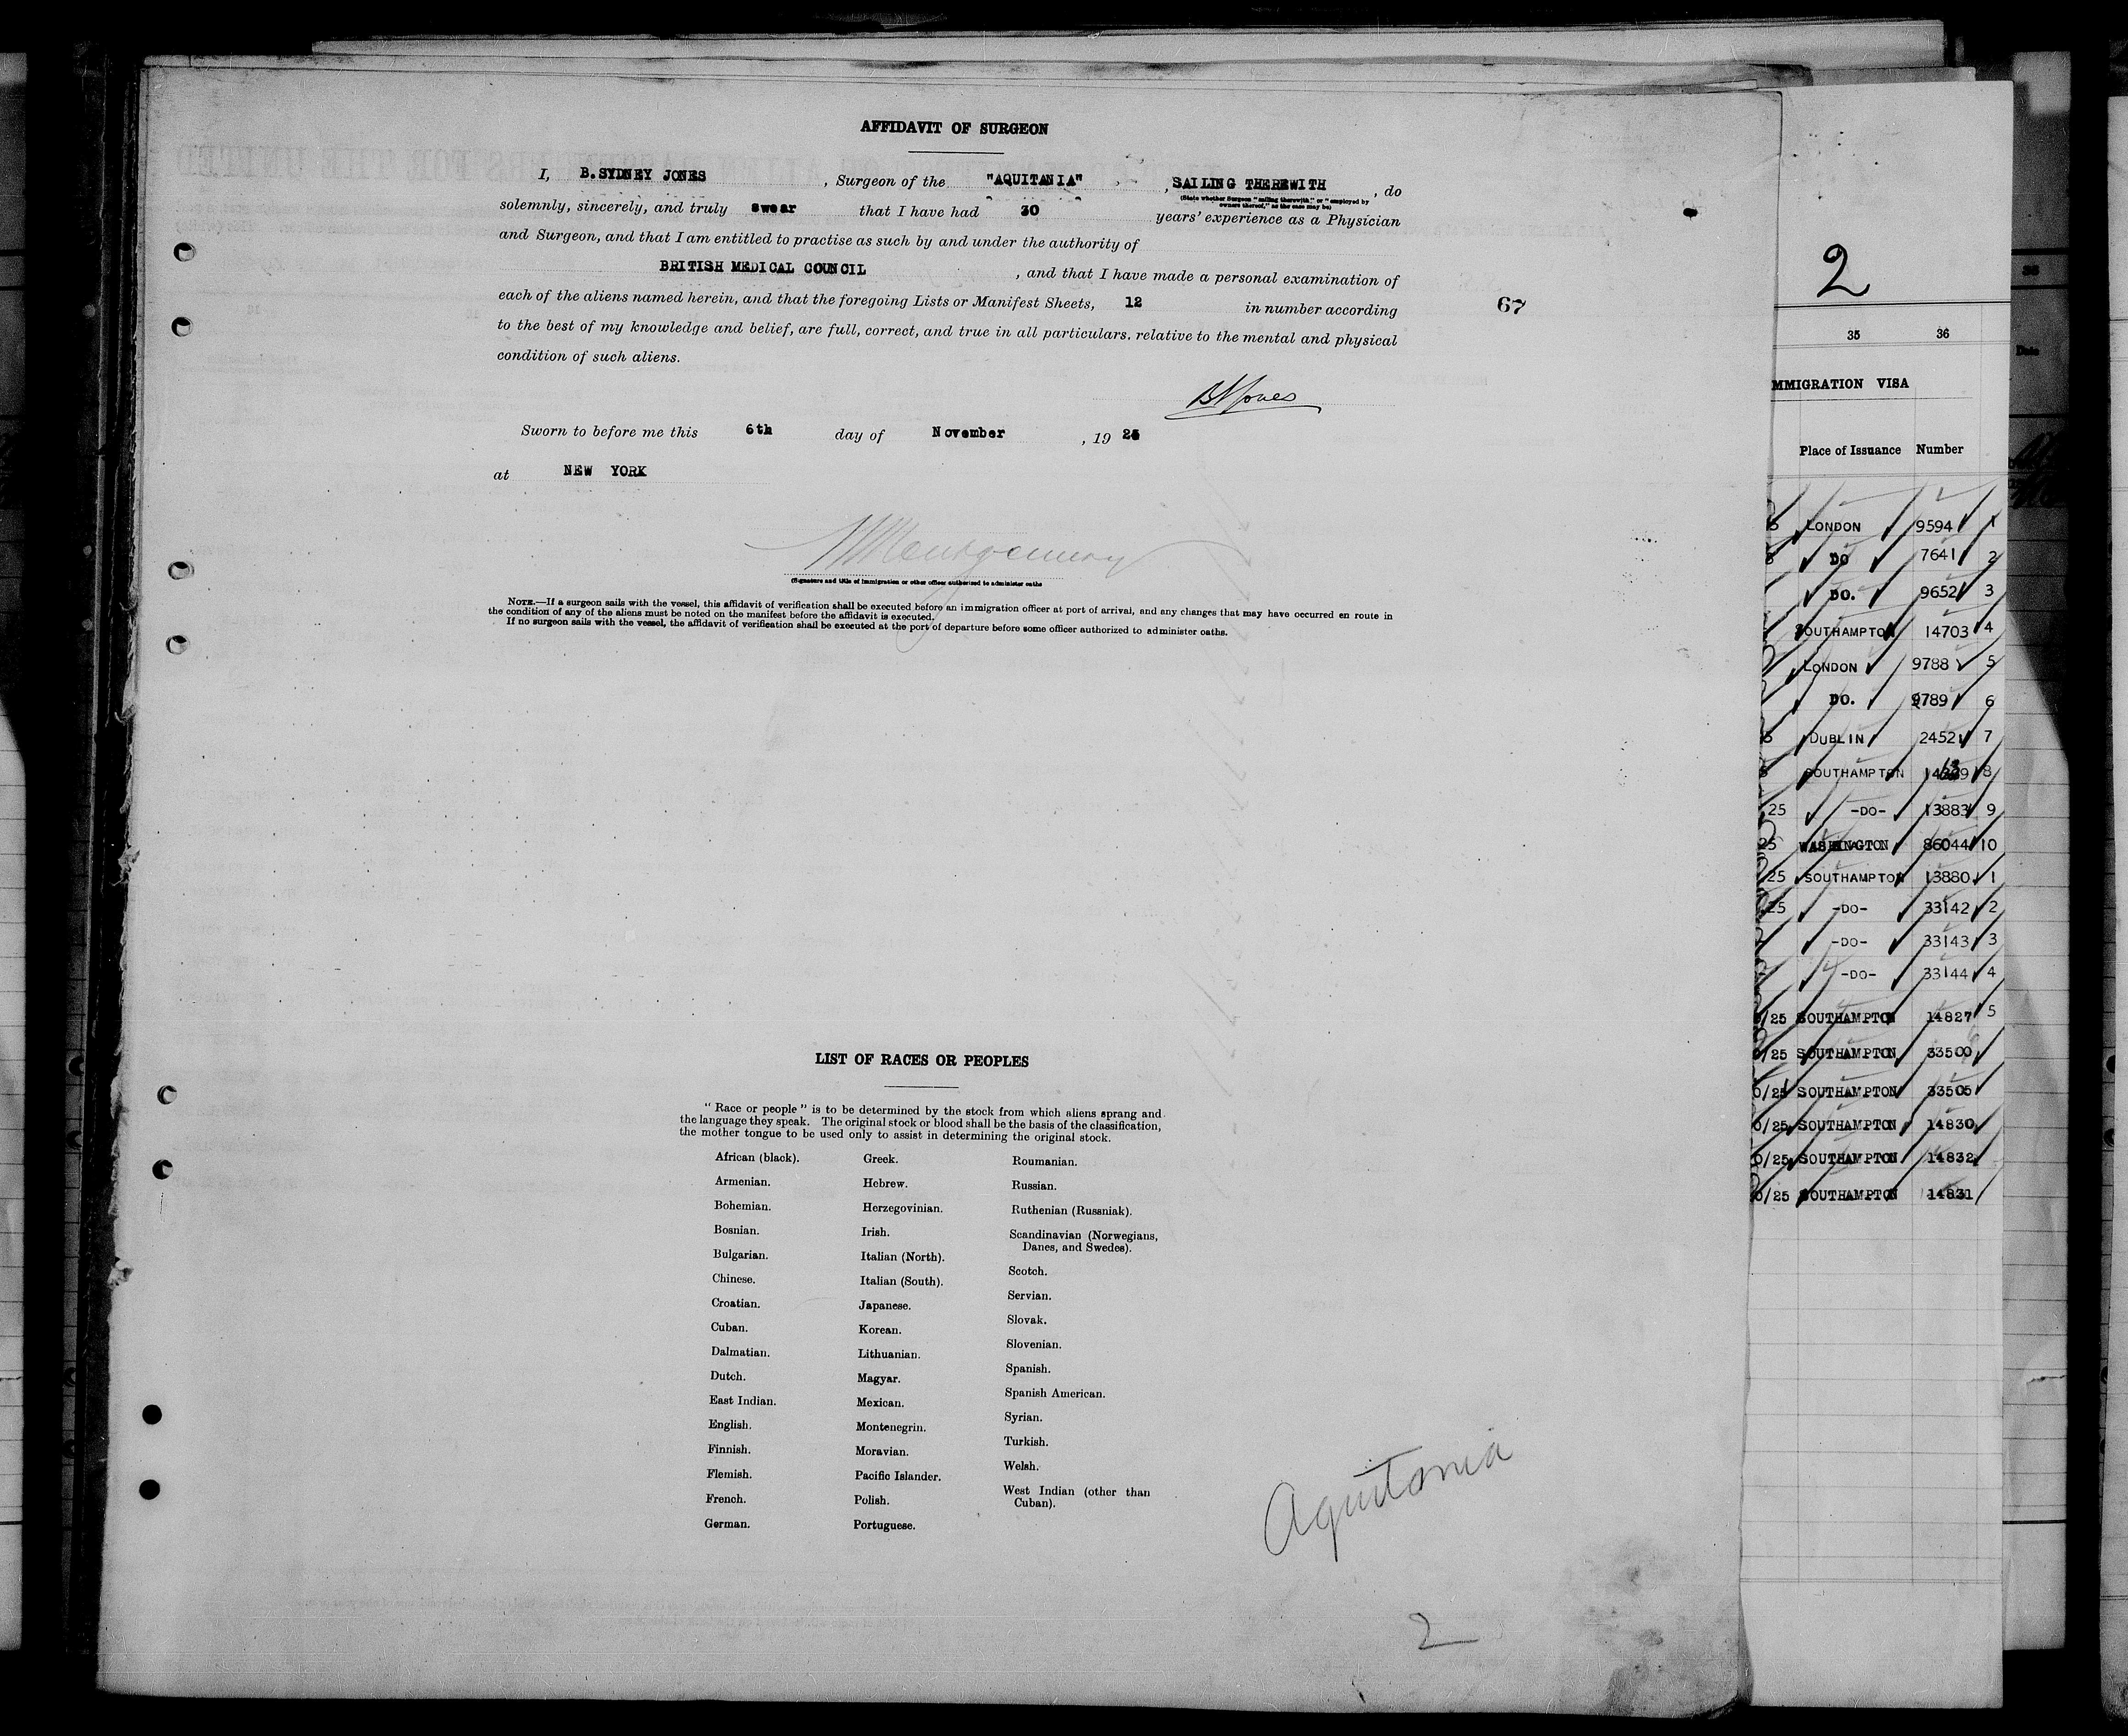 AFFIDAVIT OF SURGEON
I, B.SYDNEY JONES , Surgeon of the "AQUITANIA" , SAILING THEREWITH , do
(State whether Surgeon "sailing therewith," or "employed by
owners thereof," as the case may be)
solemnly, sincerely, and truly swear that I have had 30 years' experience as a Physician
and Surgeon, and that I am entitled to practise as such by and under the authority of
BRITISH MEDICAL COUNCIL , and that I have made a personal examination of
each of the aliens named herein, and that the foregoing Lists or Manifest Sheets, 12 in number according
to the best of my knowledge and belief, are full, correct, and true in all particulars. relative to the mental and physical
condition of such aliens.
67
BSJones
Sworn to before me this 6th day of November , 19 25
at NEW YORK
Montgomery
(Signature and title of immigration or other officer authorized to administer oaths
NOTE.—If a surgeon sails with the vessel, this affidavit of verification shall be executed before an immigration officer at port of arrival, and any changes that may have occurred en route in
the condition of any of the aliens must be noted on the manifest before the affidavit is executed.
If no surgeon sails with the vessel, the affidavit of verification shall be executed at the port of departure before some officer authorized to administer oaths.
LIST OF RACES OR PEOPLES
"Race or people" is to be determined by the stock from which aliens sprang and
the language they speak. The original stock or blood shall be the basis of the classification,
the mother tongue to be used only to assist in determining the original stock.
African (black).
Armenian.
Bohemian.
Bosnian.
Bulgarian.
Chinese.
Croatian.
Cuban.
Dalmatian.
Dutch.
East Indian.
English.
Finnish.
Flemish.
French.
German.
Greek.
Hebrew.
Herzegovinian.
Irish.
Italian (North).
Italian (South).
Japanese.
Korean.
Lithuanian.
Magyar.
Mexican.
Montenegrin.
Moravian.
Pacific Islander.
Polish.
Portuguese.
Roumanian.
Russian.
Ruthenian (Russniak).
Scandinavian (Norwegians,
Danes, and Swedes).
Scotch.
Servian.
Slovak.
Slovenian.
Spanish.
Spanish American.
Syrian.
Turkish.
Welsh.
West Indian (other than
Cuban).
Aquitania
2
2
35 36
MMIGRATION VISA
Place of Issuance Number
LONDON 9594 1
DO 7641 2
DO. 9652 3
SOUTHAMPTON 14703 4
LONDON 9788 5
DO. 9789 6
DUBLIN 2452 7
SOUTHAMPTON 8
25 -DO- 13883 9
25 WASHINGTON 86044 10
25 SOUTHAMPTON 13880 1
25 -DO- 33142 2
-DO- 33143 3
-DO- 33144 4
/25 SOUTHAMPTON 14827 5
/25 SOUTHAMPTON 33500
0/25 SOUTHAMPTON 33505
0/25 SOUTHAMPTON 14830
0/25 SOUTHAMPTON 14832
0/25 SOUTHAMPTON 14831
36
Date